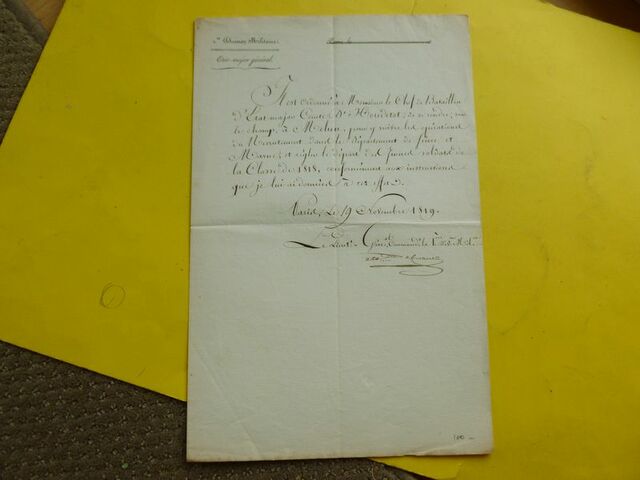 1re Division Militaire.
Paris, le
État-major général.
Il est ordonné à Monsieur le Chef de Bataillon
d'État major Comte d'Houdetot, de se rendre, sur
le champ, à Melun, pour y suivre les opérations
du Recrutement dans le département de Seine et
Marne, et régler le départ des jeunes soldats de
la Classe de 1818, conformément aux instructions
que je lui ai données à cet effet.
Paris, Le 19 Novembre 1819.
Le Lieut. Génal. Commandt. la 1re Don. Mre.
100 —